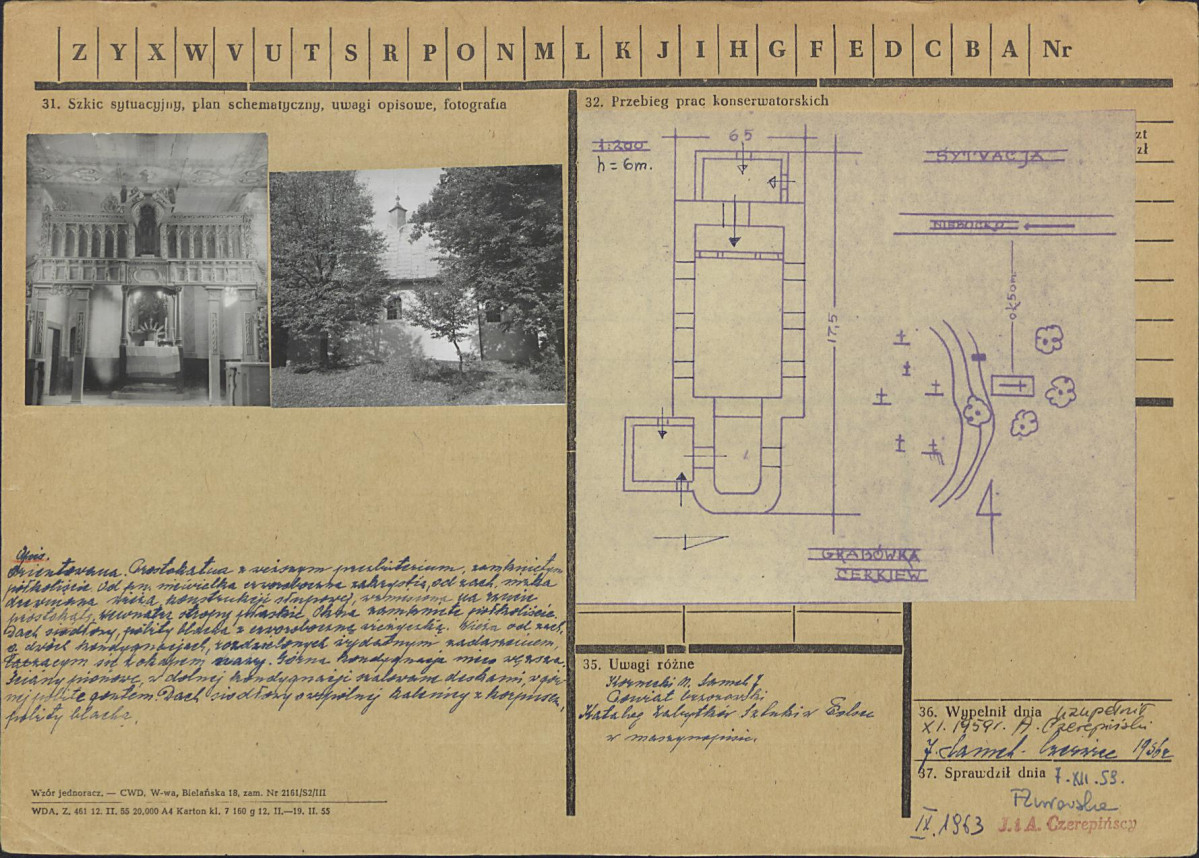 Z Y X W V U T S R P O N M L K J I H G F E D C B A Nr
31. Szkic sytuacyjny, plan schematyczny, uwagi opisowe, fotografia
32. Przebieg prac konserwatorskich
zt
zł
1:200
h = 6m.
65
17,5
SYTUACJA
NIEBOCKO
ok 50m
GRABÓWKA
CERKIEW
Opis.
Orientowana. Prostokątna z węższym presbiterium, zamkniętym
półkolisto. Od pn. niewielka czworoboczna zakrystia, od zach. niska
drewniana wieża konstrukcji słupowej, wzniesiona na rzucie
prostokąta, wewnątrz stropy płaskie, Okna zamknięte półkoliście.
Dach siodłowy, pobity blachą z czworoboczną wieżyczką. Wieża od zach.
o dwóch kondygnacjach, rozdzielonych wydatnym zadaszeniem,
łączącym się z okapem nawy. Górna kondygnacja nieco węższa.
Ściany pionowe, w dolnej kondygnacji szalowane deskami, w gór-
nej pobite gontem. Dach siodłowy o wspólnej kalenicy z korpusem,
pobity blachą.
35. Uwagi różne
Kornecki M. Samek J.
Powiat brzozowski
Katalog Zabytków Sztuki w Polsce
w maszynopisie.
36. Wypełnił dnia uzupełnił
XI. 1959r. A. Czerepiński
J. Samek. Czerwiec 1956r
37. Sprawdził dnia 7.XII.59.
IX.1963 J. i A. Czerepińscy
Wzór jednoracz. — CWD, W-wa, Bielańska 18, zam. Nr 2161/S2/III
WDA. Z. 461 12. II. 55 20.000 A4 Karton kl. 7 160 g 12. II.—19. II. 55